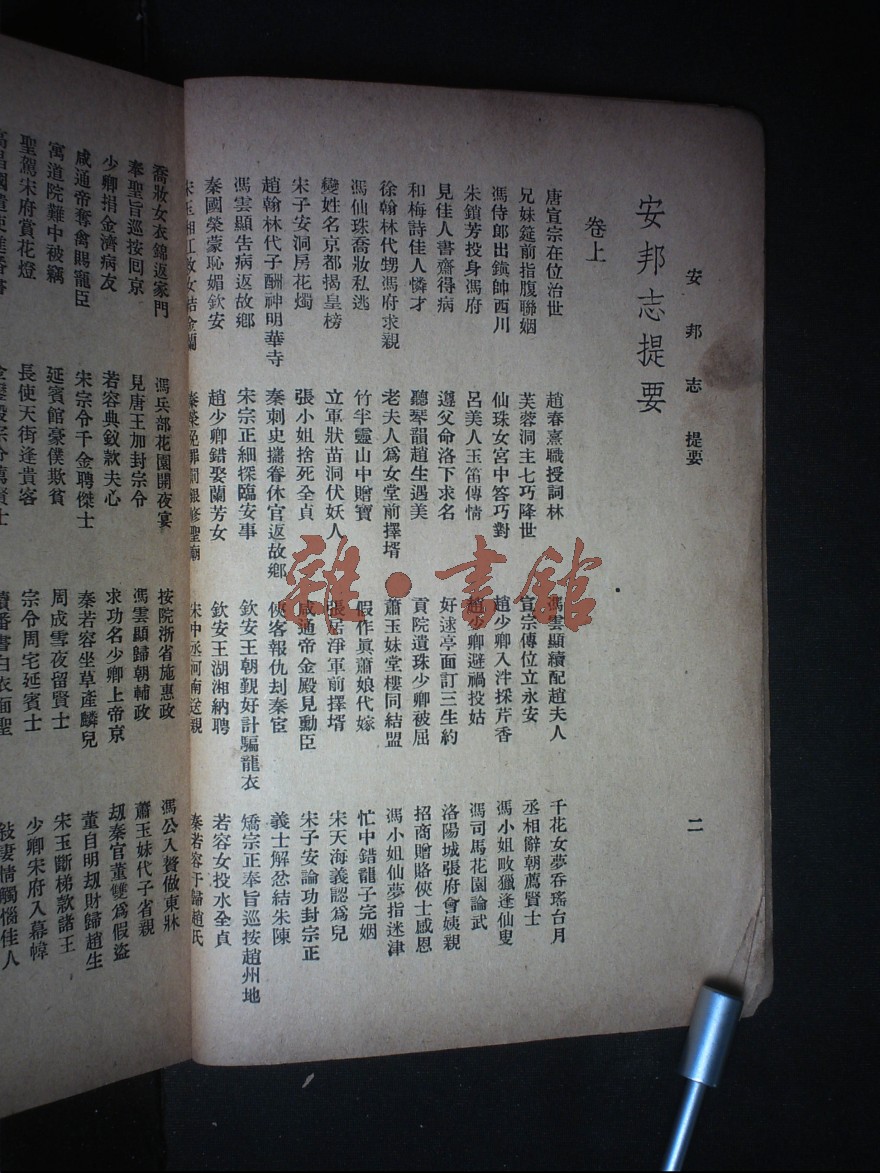 安邦志 提要 二
安邦志提要
卷上
唐宣宗在位治世 趙春熹職授詞林 馮雲顯續配趙夫人 千花女夢吞瑤台月
兄妹筵前指腹聯姻 芙蓉洞主七巧降世 宣宗傳位立永安 丞相辭朝薦賢士
馮侍郎出鎭帥西川 仙珠女宮中答巧對 趙少卿入泮採芹香 馮小姐畋獵逢仙叟
朱鎖芳投身馮府 呂美人玉笛傳情 趙少卿避禍投姑 馮司馬花園論武
見佳人書齋得病 遵父命洛下求名 好逑亭面訂三生約 洛陽城張府會姨親
和梅詩佳人憐才 聽琴韻趙生遇美 貢院遺珠少卿被屈 招商贈賂俠士感恩
徐翰林代甥馮府求親 老夫人爲女堂前擇壻 蕭玉妹堂樓同結盟 馮小姐仙夢指迷津
馮仙珠喬妝私逃 竹半靈山中贈寶 假作眞蕭娘代嫁 忙中錯龍子完姻
變姓名京都揭皇榜 立軍狀苗洞伏妖人 張居淨軍前擇壻 宋天海義認爲兒
宋子安洞房花燭 張小姐捨死全貞 咸通帝金殿見勳臣 宋子安論功封宗正
趙翰林代子酬神明華寺 秦刺史攜眷休官返故鄉 俠客報仇刦秦宦 義士解忿結朱陳
馮雲顯告病返故鄉 宋宗正細探臨安事 欽安王朝覲好計騙龍衣 矯宗正奉旨巡按趙州地
秦國榮蒙恥媚欽安 趙少卿錯娶蘭芳女 欽安王湖湘納聘 若容女投水全貞
宋玉湘江救女結金蘭 秦榮免罪罰銀修聖廟 宋中丞河南送親 秦若容于歸趙氏
喬妝女衣錦返家門 馮兵部花園開夜宴 按院浙省施惠政 馮公入贅做東牀
奉聖旨巡按回京 見唐王加封宗令 馮雲顯歸朝輔政 蕭玉妹代子省親
少卿捐金濟病友 若容典釵款夫心 求功名少卿上帝京 刼秦官董雙爲假盜
咸通帝奪禽賜寵臣 宋宗令千金聘傑士 秦若容坐草產麟兒 董自明刼財歸趙生
寓道院難中被竊 延賓館豪僕欺貧 周成雪夜留賢士 宋玉斷梯款諸王
聖駕宋府賞花燈 長使天街逢貴客 宗令周宅延賓士 少卿宋府入幕幃
高昌國遣使進番書 金鑾殿宗令薦賢士 讀番書白衣面聖 敍妻情觸惱佳人
雜·書館